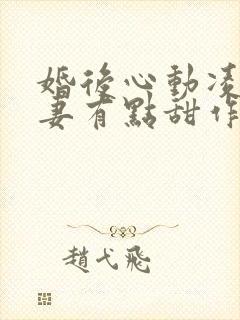 婚後心動凌
妻有點甜作
趙弋飛